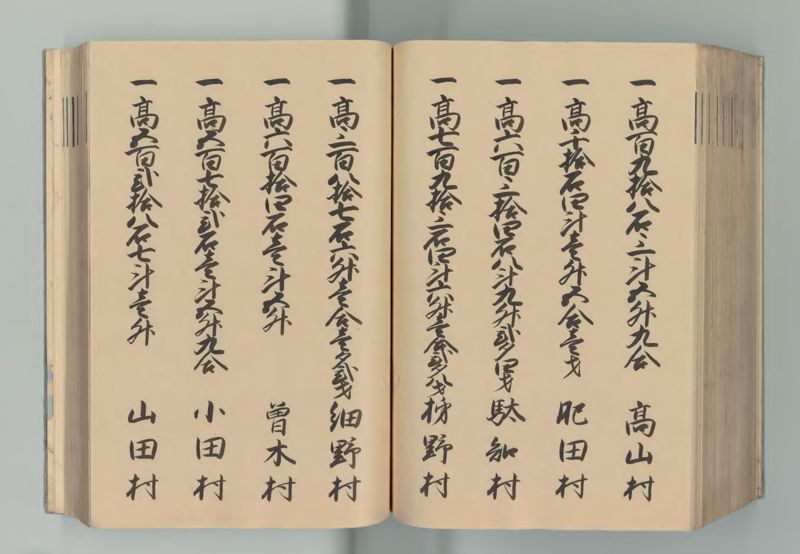 一 高百九拾八石三斗五升九合 高山村
一 高 拾石四斗壱升五合壱才 肥田村
一 高六百三拾四石八斗九升弐夕四才 駄知村
一 高七百九拾三石四斗六升壱合 野村
一 高三百八拾七石六升壱合壱夕弐才 細野村
一 高六百拾四石壱斗五升 曽木村
一 高五百七拾弐石壱斗五升九合 小田村
一 高五百弐拾八石七斗壱升 山田村